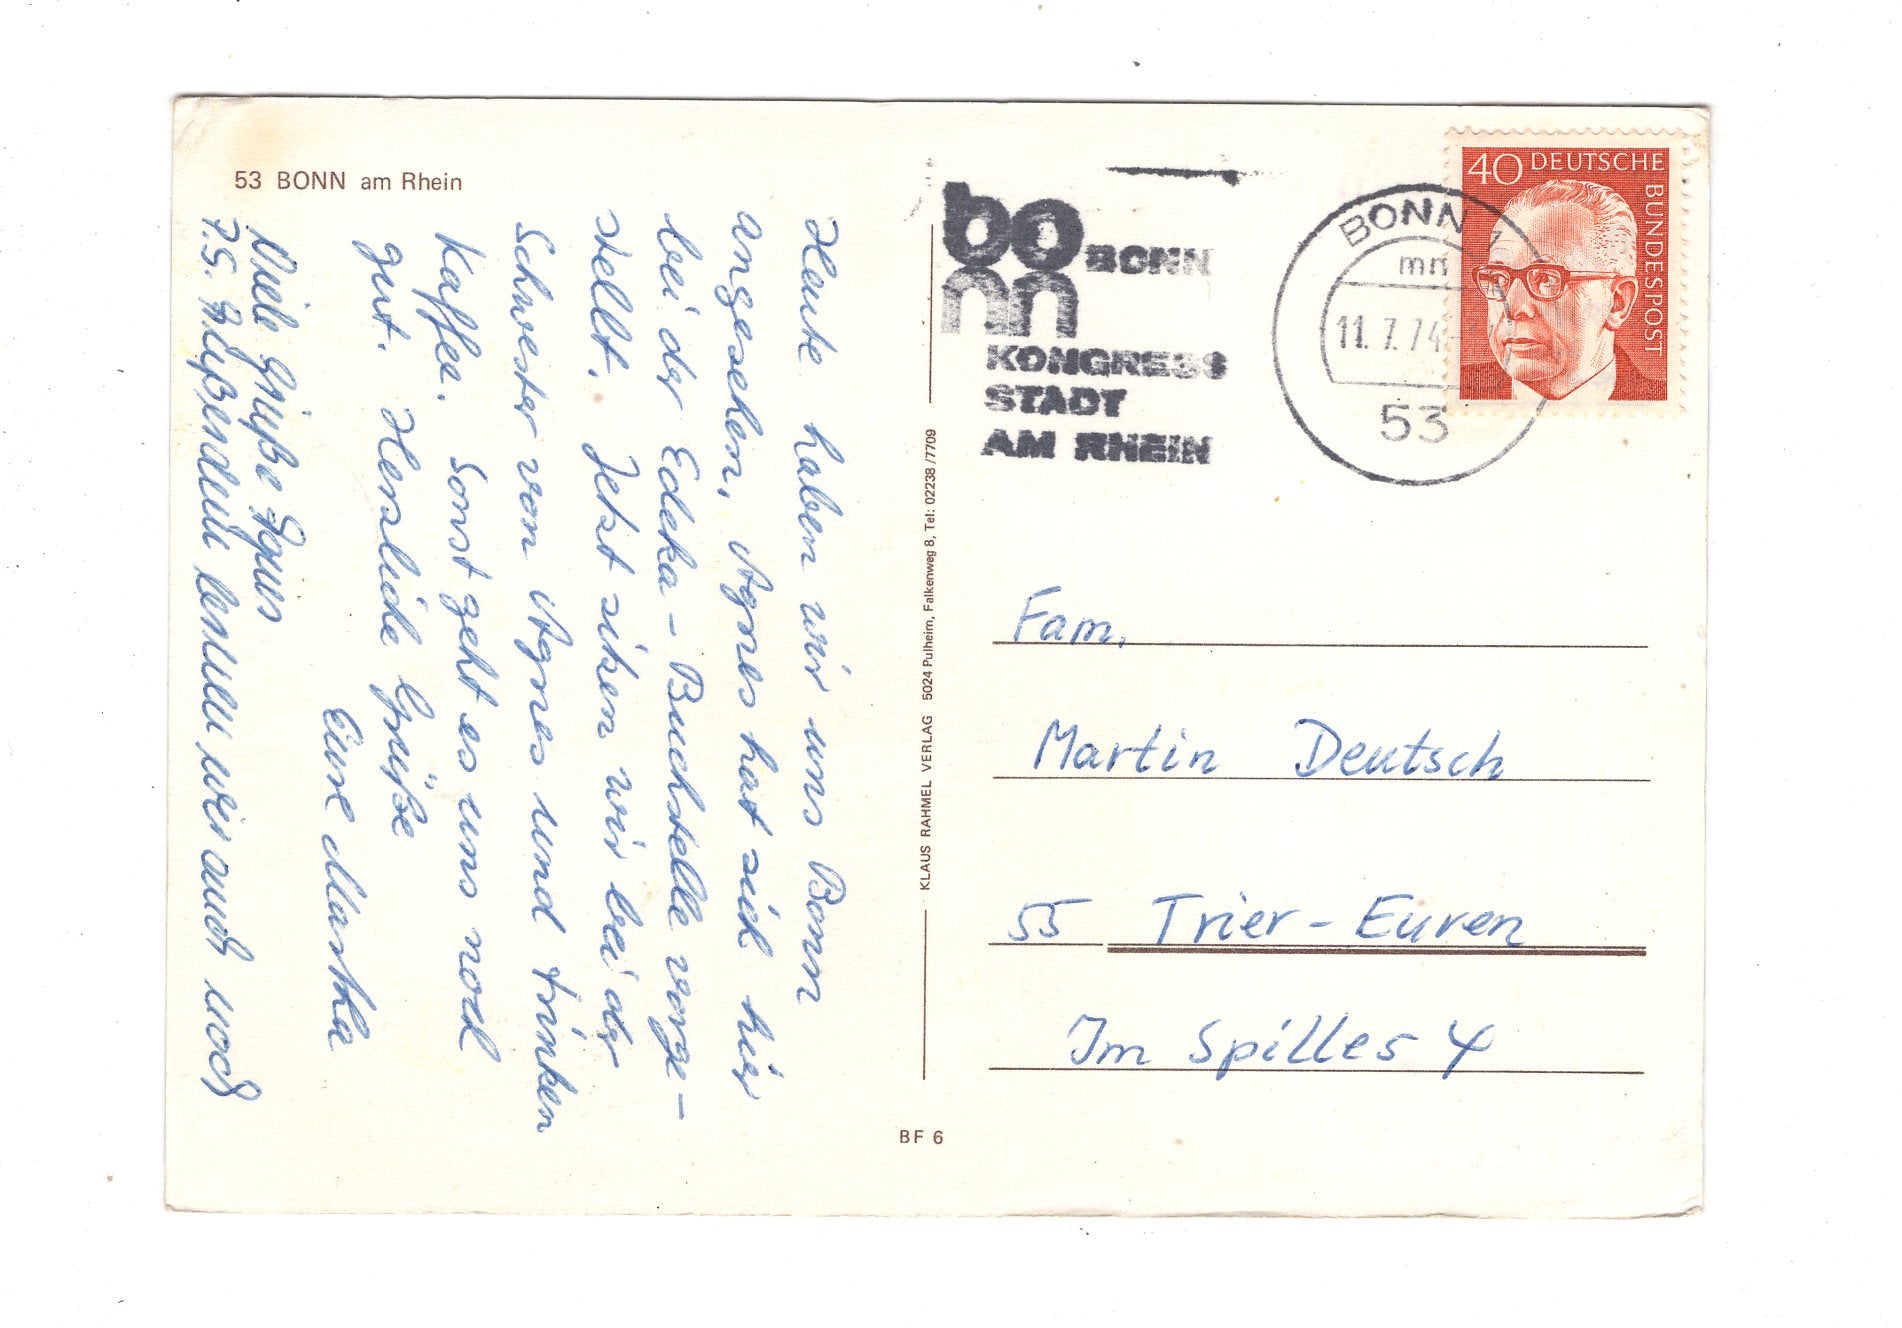 53 BONN am Rhein
Heute haben wir uns Bonn
angesehen, Agnes hat sich hier
bei der Edeka-Buchstelle vorge-
stellt. Jetzt sitzen wir bei der
Schwester von Agnes und trinken
Kaffee. Sonst geht es uns noch
gut. Herzliche Grüße
Eure Marika
Viele Grüße Agnes
P.S. lernen wir auch noch
KLAUS RAHMEL VERLAG 5024 Pulheim, Falkenweg 8, Tel: 02238/7709
BF 6
bo
nn
BONN
KONGRESS
STADT
AM RHEIN
BONN 1
mn
11.7.74
53
40 DEUTSCHE
BUNDESPOST
Fam.
Martin Deutsch
55 Trier-Euren
Im Spilles 4